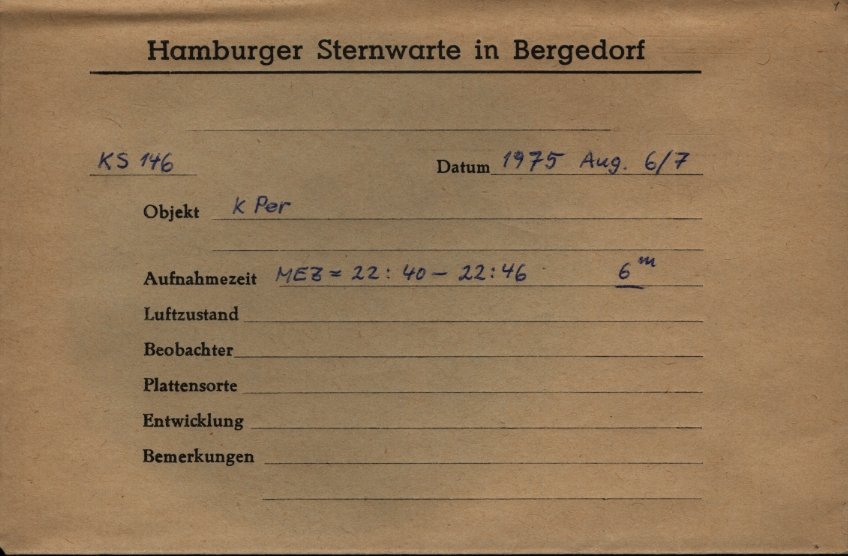 Hamburger Sternwarte in Bergedorf
KS 146 Datum 1975 Aug. 6/7
Objekt K Per
Aufnahmezeit MEZ = 22:40 – 22:46 6m
Luftzustand
Beobachter
Plattensorte
Entwicklung
Bemerkungen